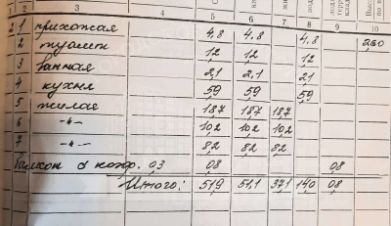 2 3 4 5 6 7 8 9 10
2 1 прихожая 4,8 4,8 4,8 2,60
2 туалет 1,2 1,2 1,2
3 ванная 2,1 2,1 2,1
4 кухня 5,9 5,9 5,9
5 жилая 18,7 18,7 18,7
6 -"- 10,2 10,2 10,2
7 -"- 8,2 8,2 8,2
Балкон с коэф. 0,3 0,8 0,8
Итого: 51,9 51,1 37,1 14,0 0,8